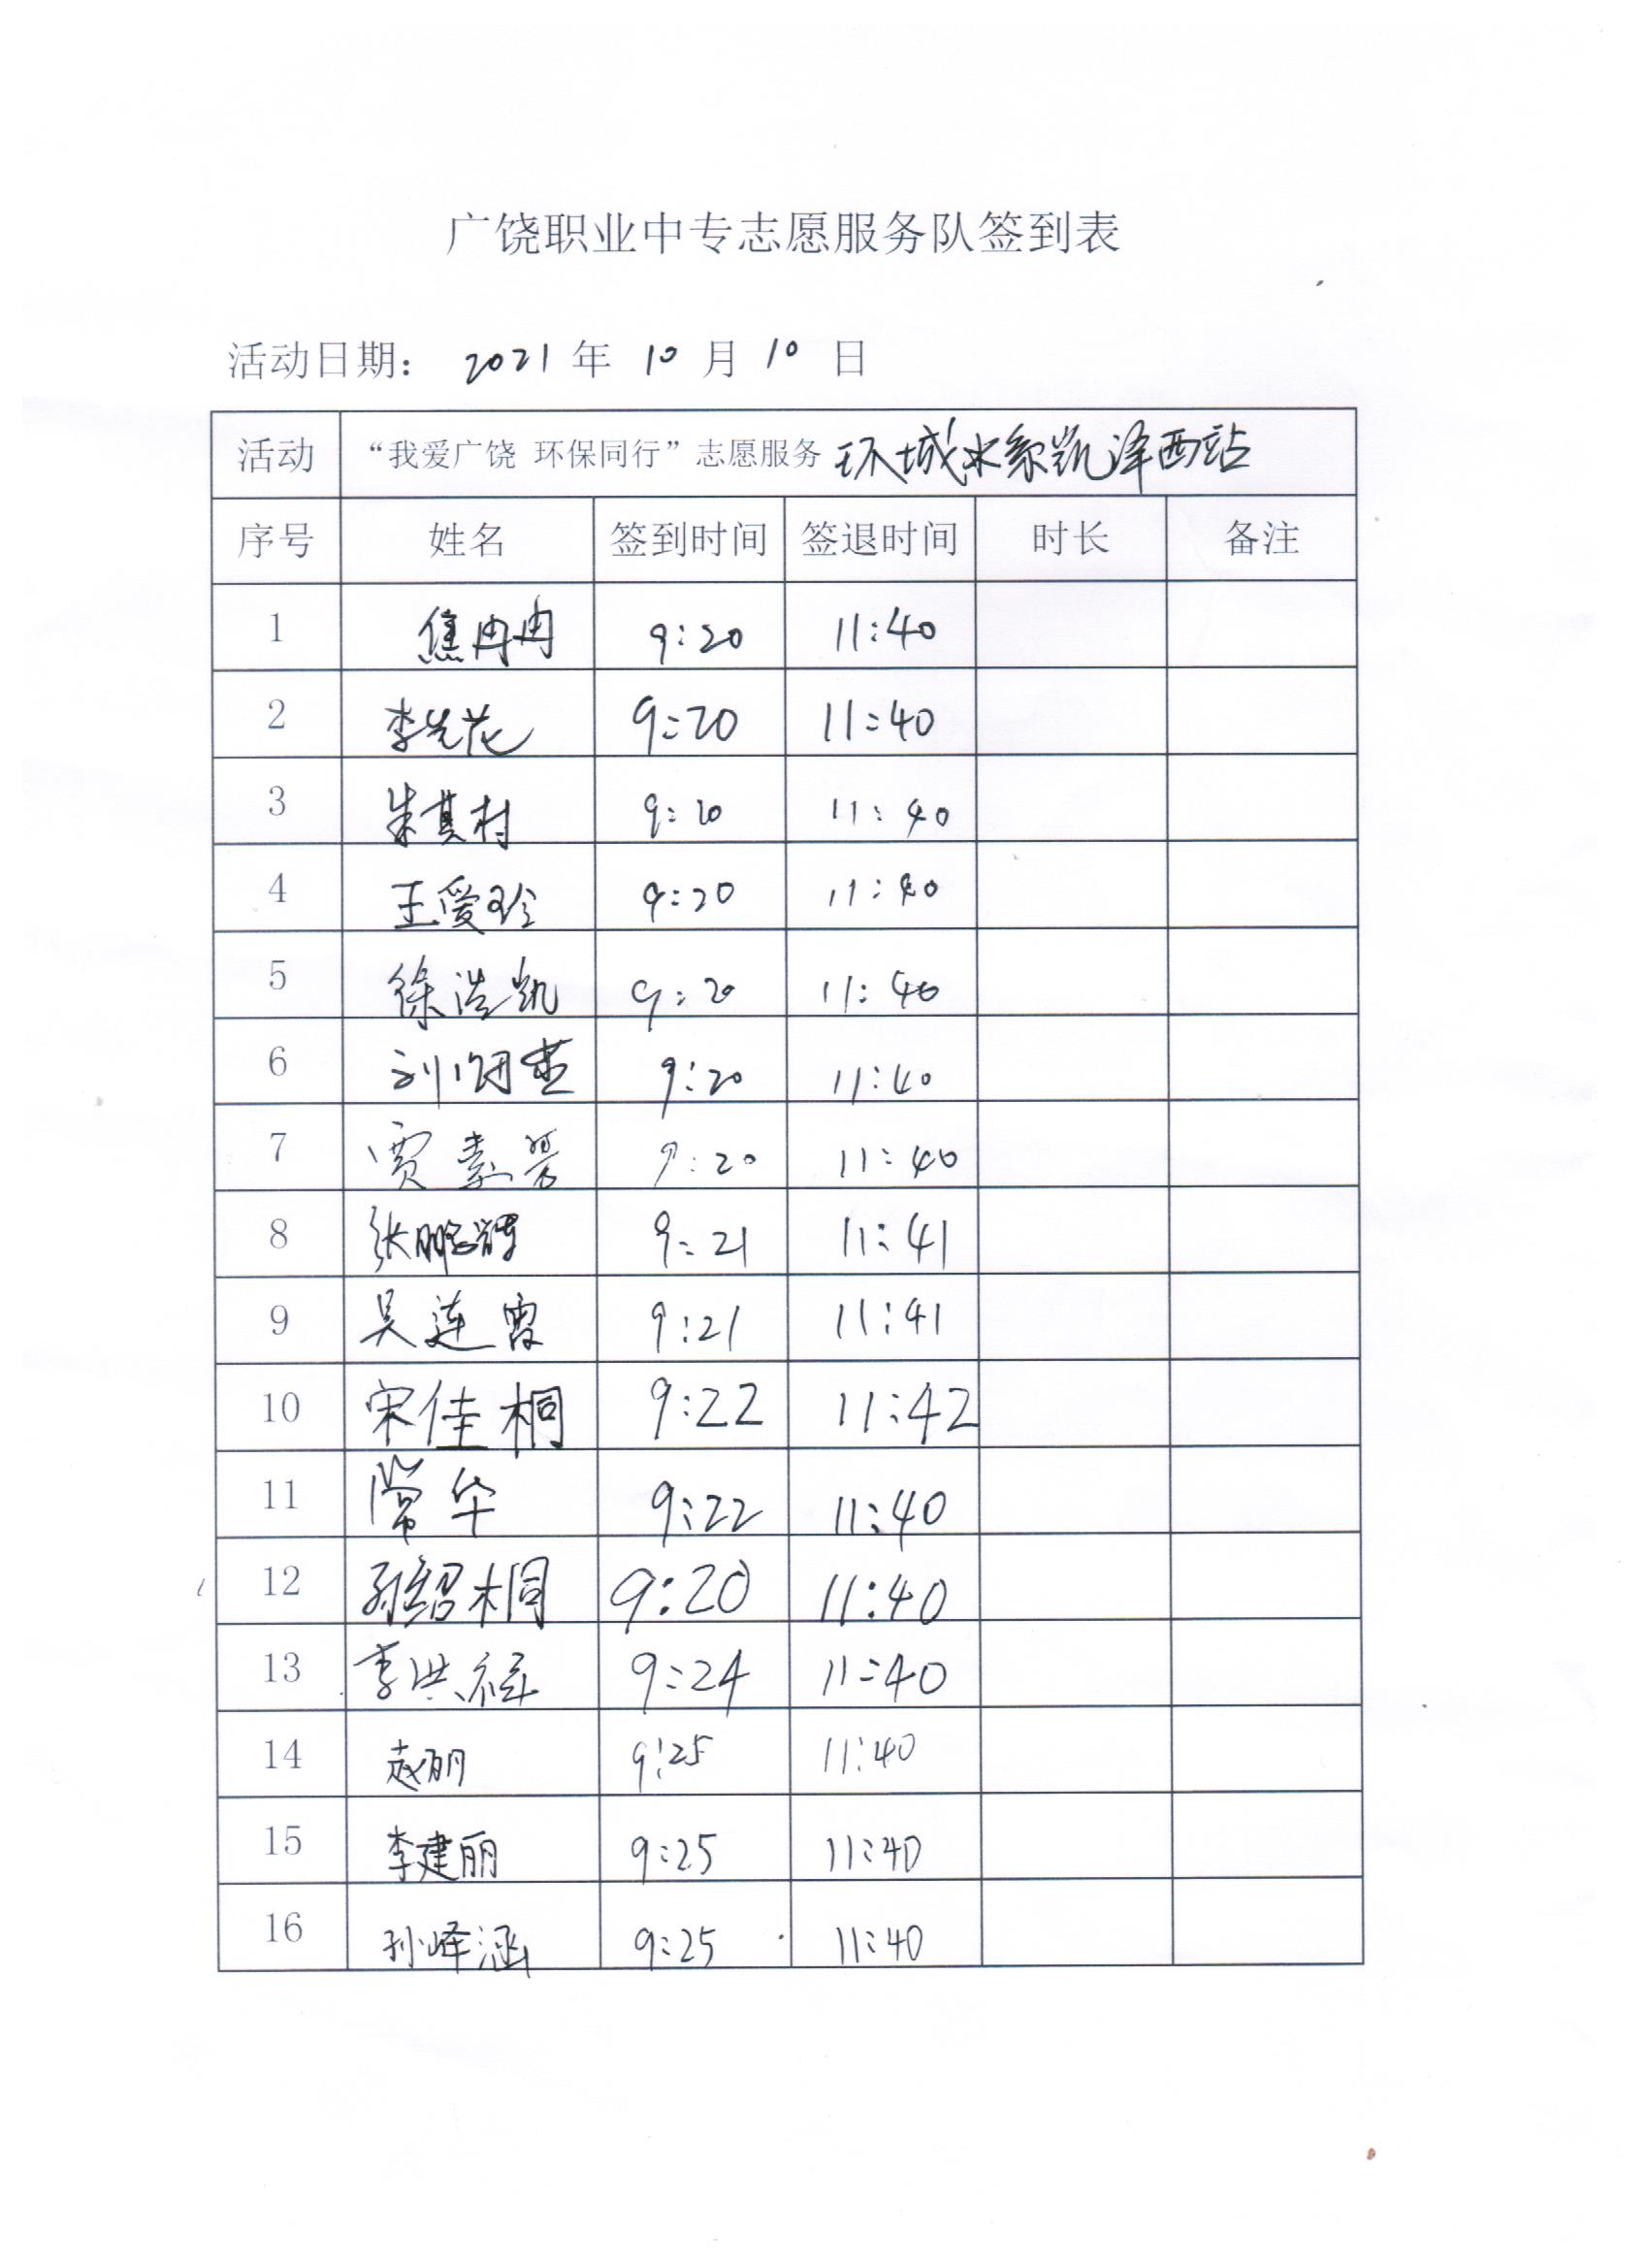 广饶职业中专志愿服务队签到表
活动日期： 2021 年 10 月 10 日
活动 “我爱广饶 环保同行”志愿服务 环城水系凯泽西站
序号 姓名 签到时间 签退时间 时长 备注
1 焦冉冉 9:20 11:40
2 李先花 9:20 11:40
3 朱其村 9:20 11:40
4 王爱玲 9:20 11:40
5 徐浩凯 9:20 11:40
6 刘 9:20 11:40
7 贾素 9:20 11:40
8 张鹏辉 9:21 11:41
9 吴连霞 9:21 11:41
10 宋佳桐 9:22 11:42
11 常华 9:22 11:40
12 孙绍桐 9:20 11:40
13 李洪禄 9:24 11:40
14 赵丽 9:25 11:40
15 李建丽 9:25 11:40
16 孙峄涵 9:25 11:40